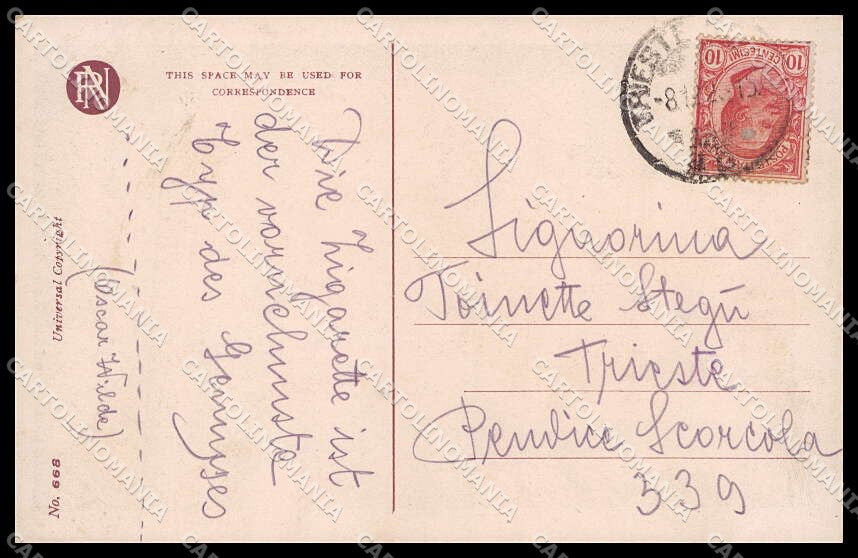 RN
THIS SPACE MAY BE USED FOR
CORRESPONDENCE
Die Zigarette ist
der vornehmste
Typ des Genusses
(Oscar Wilde)
Universal Copyright
No. 668
TRIESTE
10 10
CENTESIMI
Signorina
Toinette Stegù
Trieste
Pendice Scorcola
339
CARTOLINOMANIA